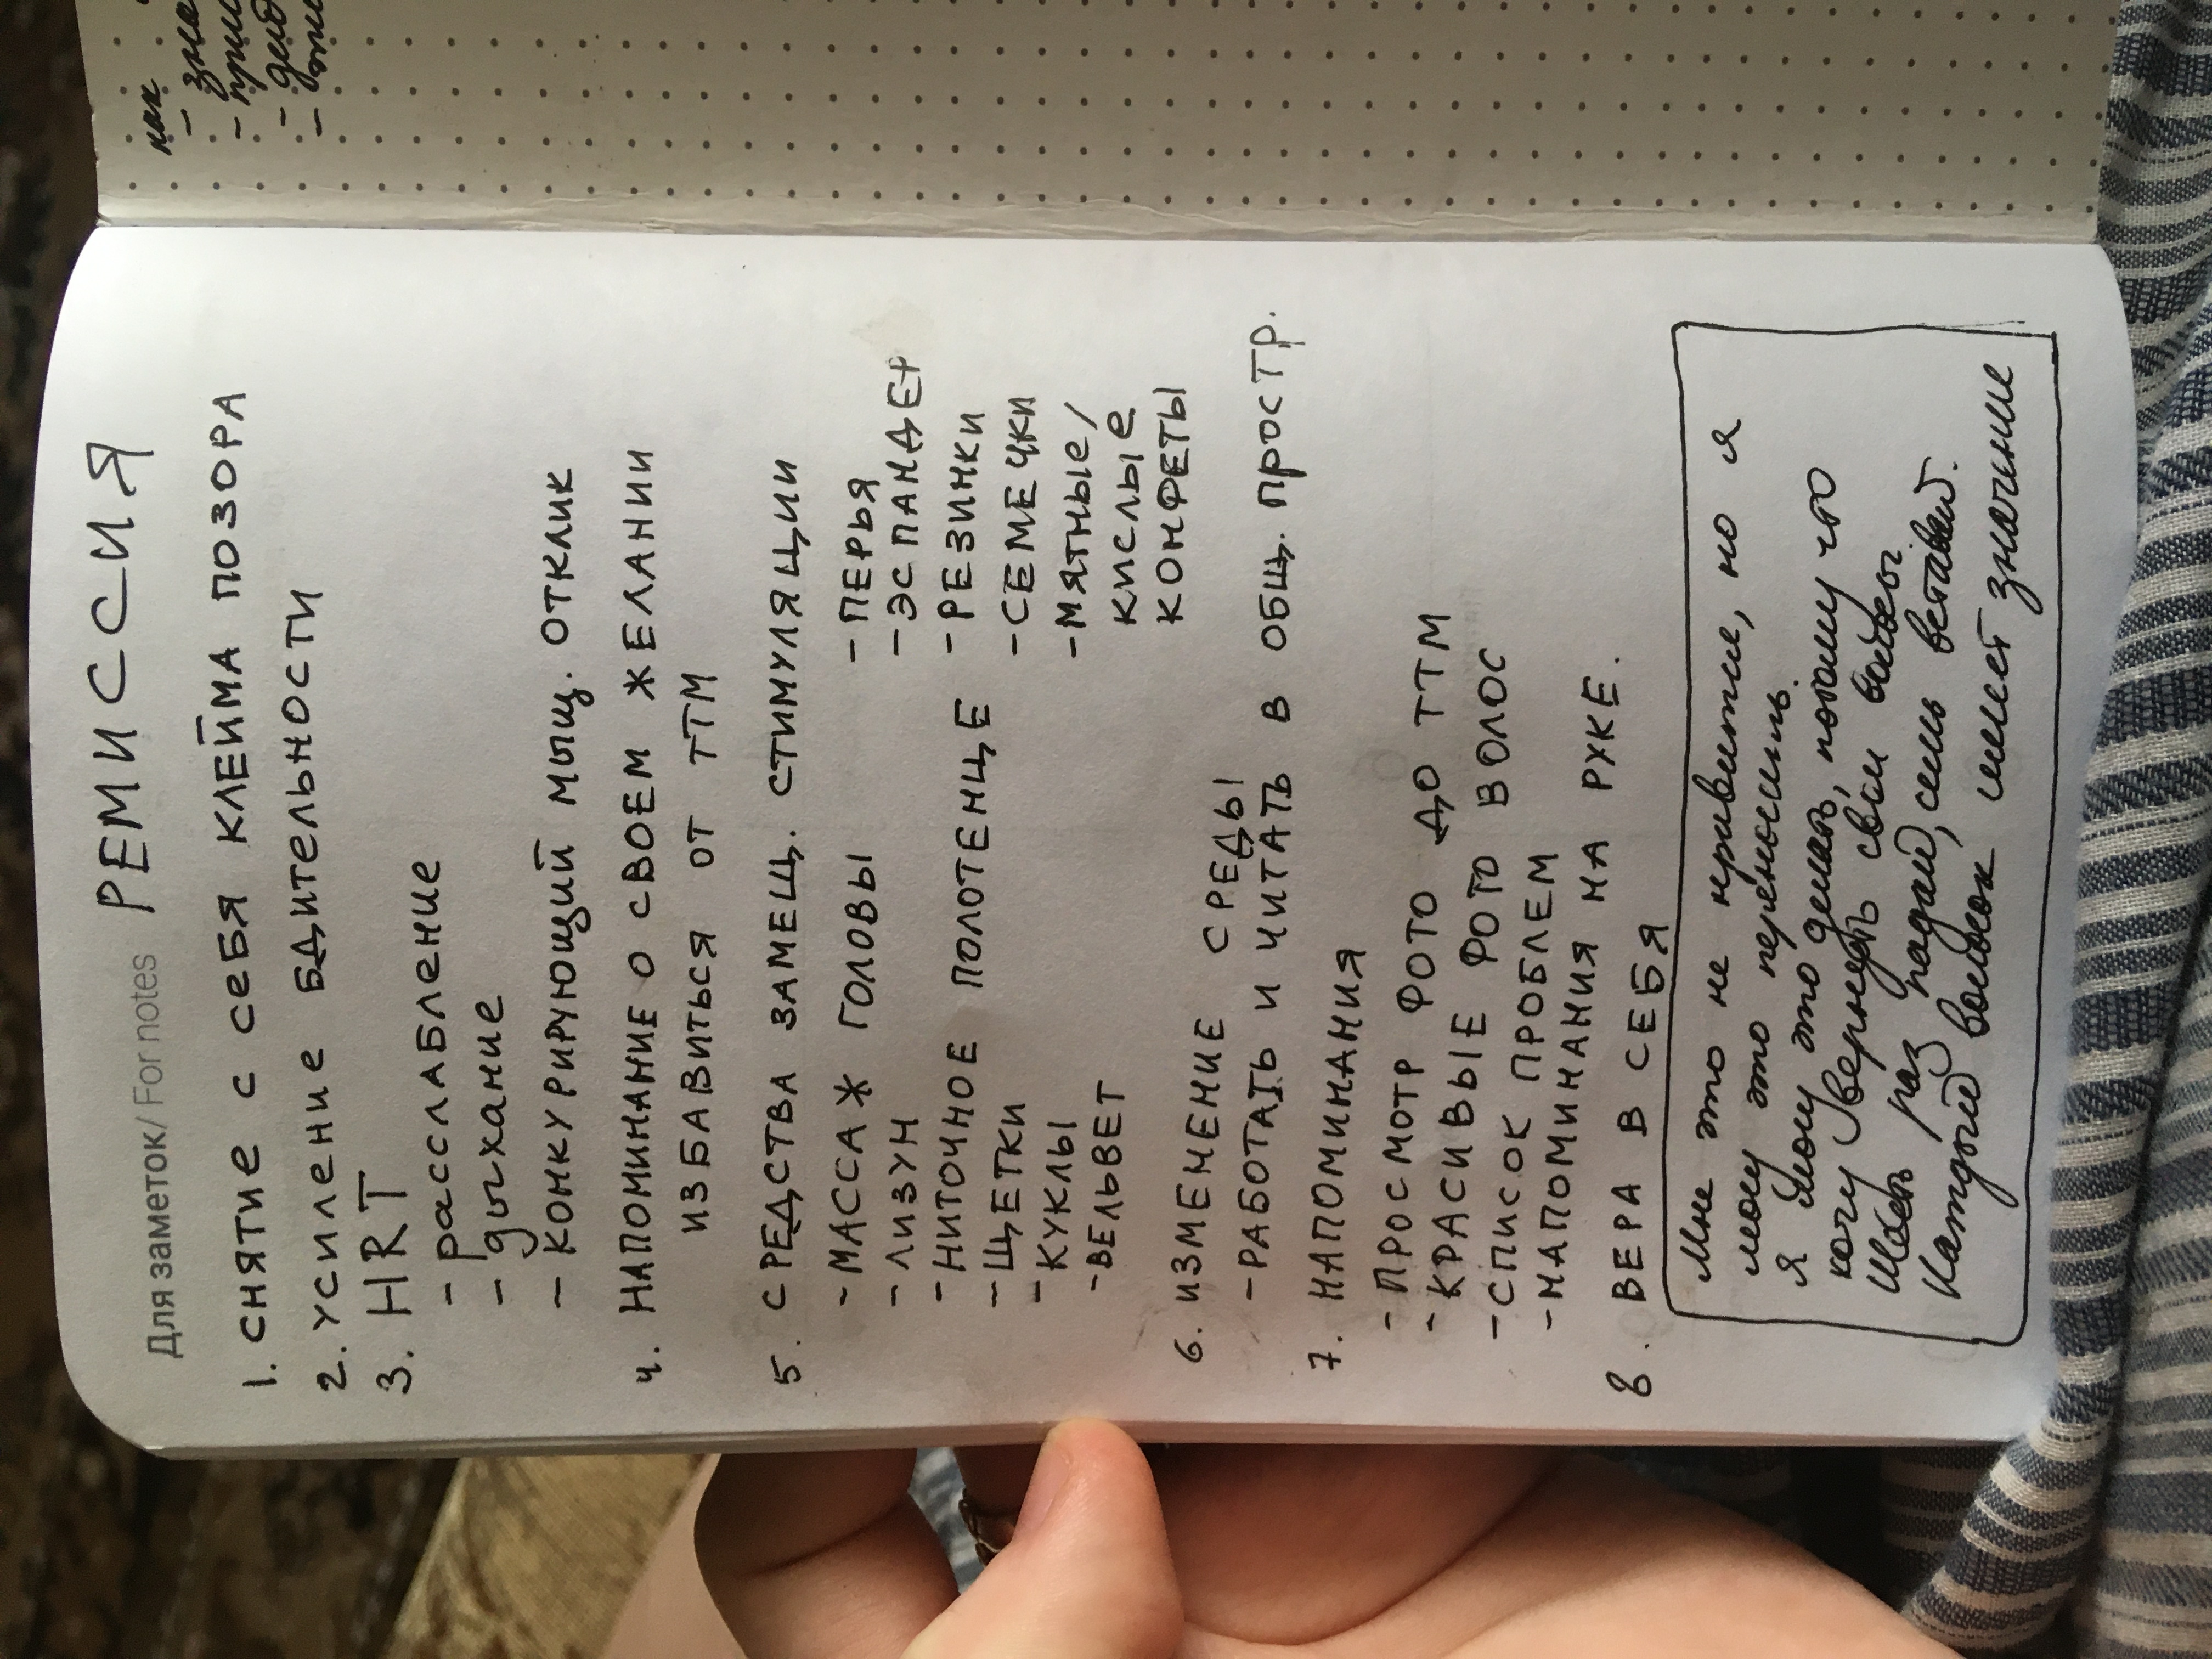 Для заметок/ For notes РЕМИССИЯ
1. СНЯТИЕ С СЕБЯ КЛЕЙМА ПОЗОРА
2. УСИЛЕНИЕ БДИТЕЛЬНОСТИ
3. HRT
- расслабление
- дыхание
- КОНКУРИРУЮЩИЙ МЫЩ. ОТКЛИК
4. НАПОМИНАНИЕ О СВОЕМ ЖЕЛАНИИ
ИЗБАВИТЬСЯ ОТ ТТМ
5. СРЕДСТВА ЗАМЕЩ. СТИМУЛЯЦИИ
- МАССАЖ ГОЛОВЫ
- ЛИЗУН
- НИТОЧНОЕ ПОЛОТЕНЦЕ
- ЩЕТКИ
- КУКЛЫ
- ВЕЛЬВЕТ
- ПЕРЬЯ
- ЭСПАНДЕР
- РЕЗИНКИ
- СЕМЕЧКИ
- МЯТНЫЕ/
КИСЛЫЕ
КОНФЕТЫ
6. ИЗМЕНЕНИЕ СРЕДЫ
- РАБОТАТЬ И ЧИТАТЬ В ОБЩ. ПРОСТР.
7. НАПОМИНАНИЯ
- ПРОСМОТР ФОТО ДО ТТМ
- КРАСИВЫЕ ФОТО ВОЛОС
- СПИСОК ПРОБЛЕМ
- НАПОМИНАНИЯ НА РУКЕ.
8. ВЕРА В СЕБЯ
Мне это не нравится, но я
могу это переносить.
Я могу это делать, потому что
хочу вернуть свои волосы
Шесть раз падай, семь вставай.
Каждый волосок имеет значение
как